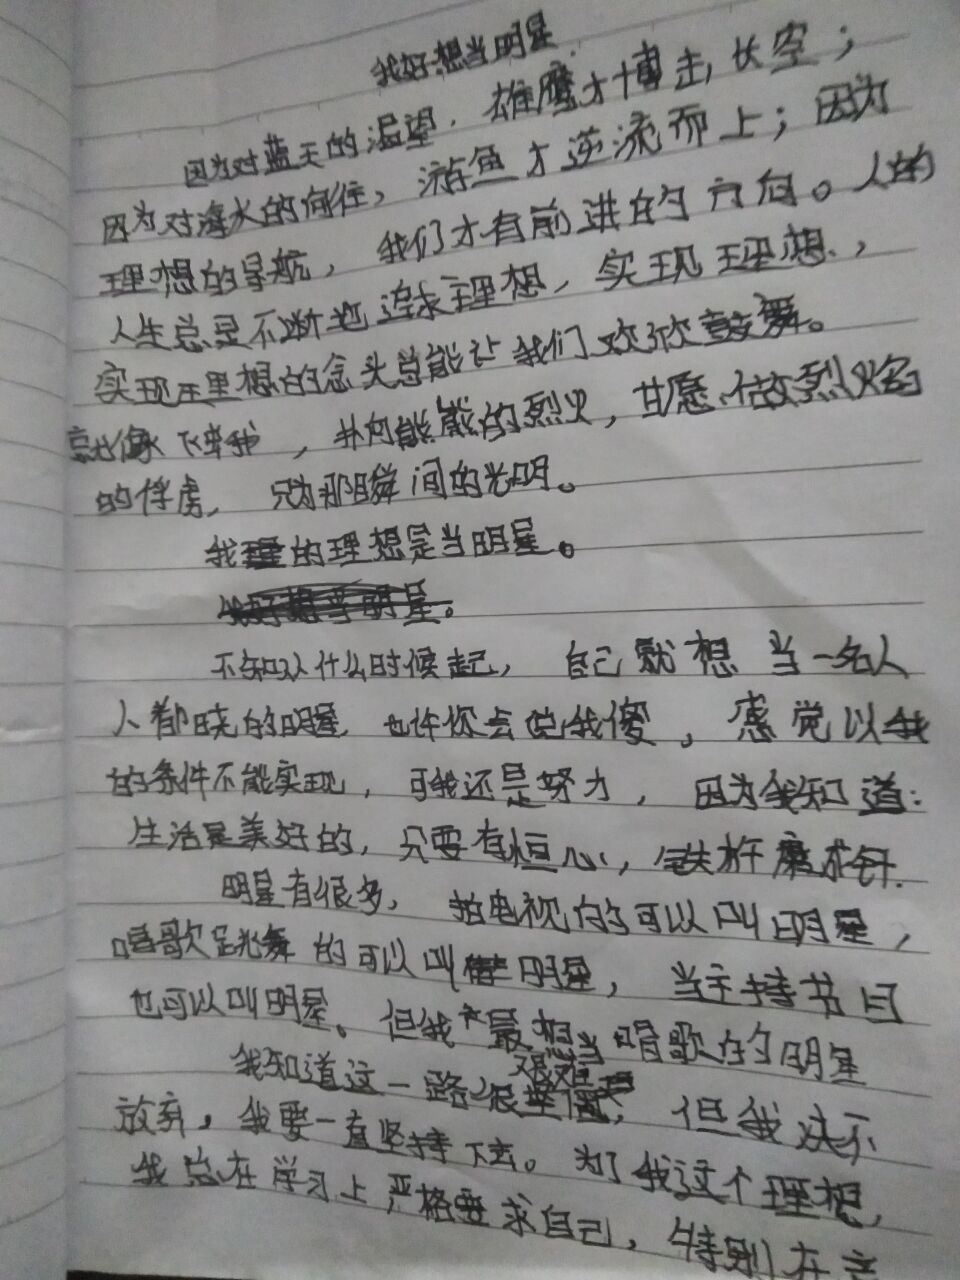 我好想当明星
因为对蓝天的渴望，雄鹰才博击长空；
因为对海水的向往，游鱼才逆流而上；因为
理想的导航，我们才有前进的方向。人的
人生总是不断地追求理想，实现理想，
实现理想的念头总能让我们欢欣鼓舞。
就像飞蛾，扑向熊熊的烈火，甘愿做烈火焰
的俘虏，只为那瞬间的光明。
我的理想是当明星。
不知从什么时候起，自己就想当一名人
人都晓的明星，也许你会说我傻，感觉以我
的条件不能实现，可我还是努力，因为我知道：
生活是美好的，只要有恒心，铁杵磨成针.
明星有很多，拍电视的可以叫明星，
唱歌跳舞的可以叫明星，当主持节目
也可以叫明星。但我最想当唱歌的明星
我知道这一路很艰难，但我决不
放弃，我要一直坚持下去。为了我这个理想，
我总在学习上严格要求自己，特别在音